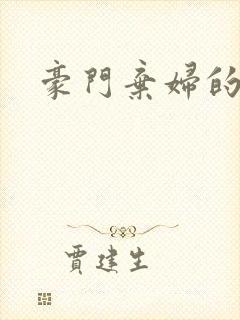 豪門棄婦的
賈建生